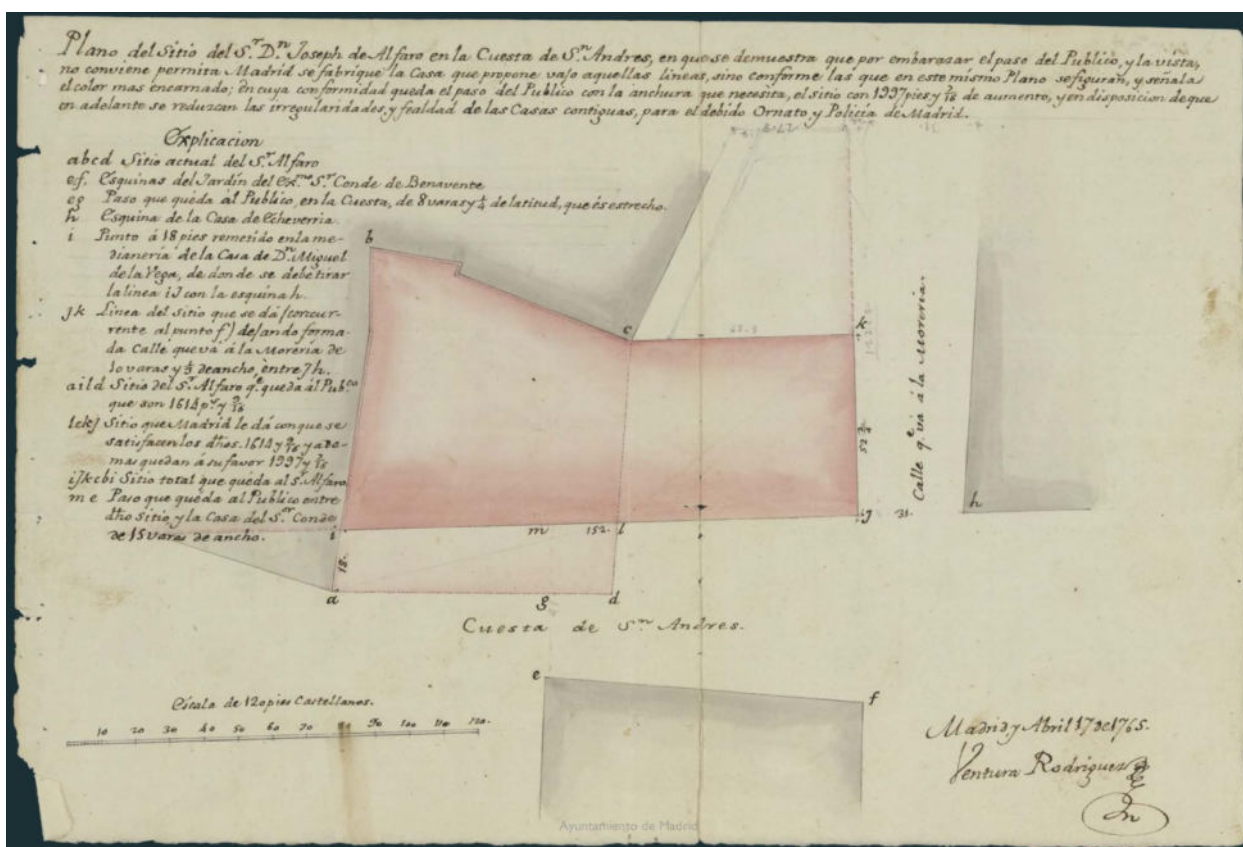 Plano del Sitio del S.r D.n Joseph de Alfaro en la Cuesta de S.n Andres, en que se demuestra que por embarazar el paso del Publico, y la vista,
no conviene permita Madrid se fabrique la Casa que propone vajo aquellas lineas, sino conforme las que en este mismo Plano se figuran, y señala
el color mas encarnado; en cuya conformidad queda el paso del Publico con la anchura que necesita, el sitio con 1997 pies y 7/18 de aumento, y en disposicion de que
en adelante se reduzcan las irregularidades y fealdad de las Casas contiguas, para el debido Ornato y Policía de Madrid.
Explicacion
abcd Sitio actual del S.r Alfaro
ef. Esquinas del Jardín del Ex.mo S.r Conde de Benavente
eg Paso que queda al Publico, en la Cuesta, de 8 varas y 1/4 de latitud, que és estrecho.
h Esquina de la Casa de Echeverria.
i Punto á 18 pies remetido en la me-
dianería de la Casa de D.n Miguel
de la Vega, de donde se debe tirar
la linea iJ con la esquina h.
Jk Linea del Sitio que se dá (concur-
rente al punto f) dejando forma-
da Calle que vá á la Moreria de
10 varas y 1/3 de ancho, entre Jh.
aild Sitio del S.r Alfaro q.e queda ál Pub.co
que son 1614 p.s y
lckj Sitio que Madrid le dá con que se
satisfacen los dhos. 1614 y y ade-
mas quedan á su favor 1997 y 7/18
iJkcbi Sitio total que queda al S.r Alfaro
m e Paso que queda al Publico entre
dho Sitio, y la Casa del S.or Conde
de 15 varas de ancho.
b
c
k
63.9
52 3/4
Calle q.e vá á la Moreria.
h
i
m
152.
l
J
31.
18.
a
g
d
Cuesta de S.n Andres.
e
f
Escala de 120 pies Castellanos.
10 20 30 40 50 60 70 80 90 100 110 120.
Madrid y Abril 17 de 1765.
Ventura Rodriguez
Ayuntamiento de Madrid